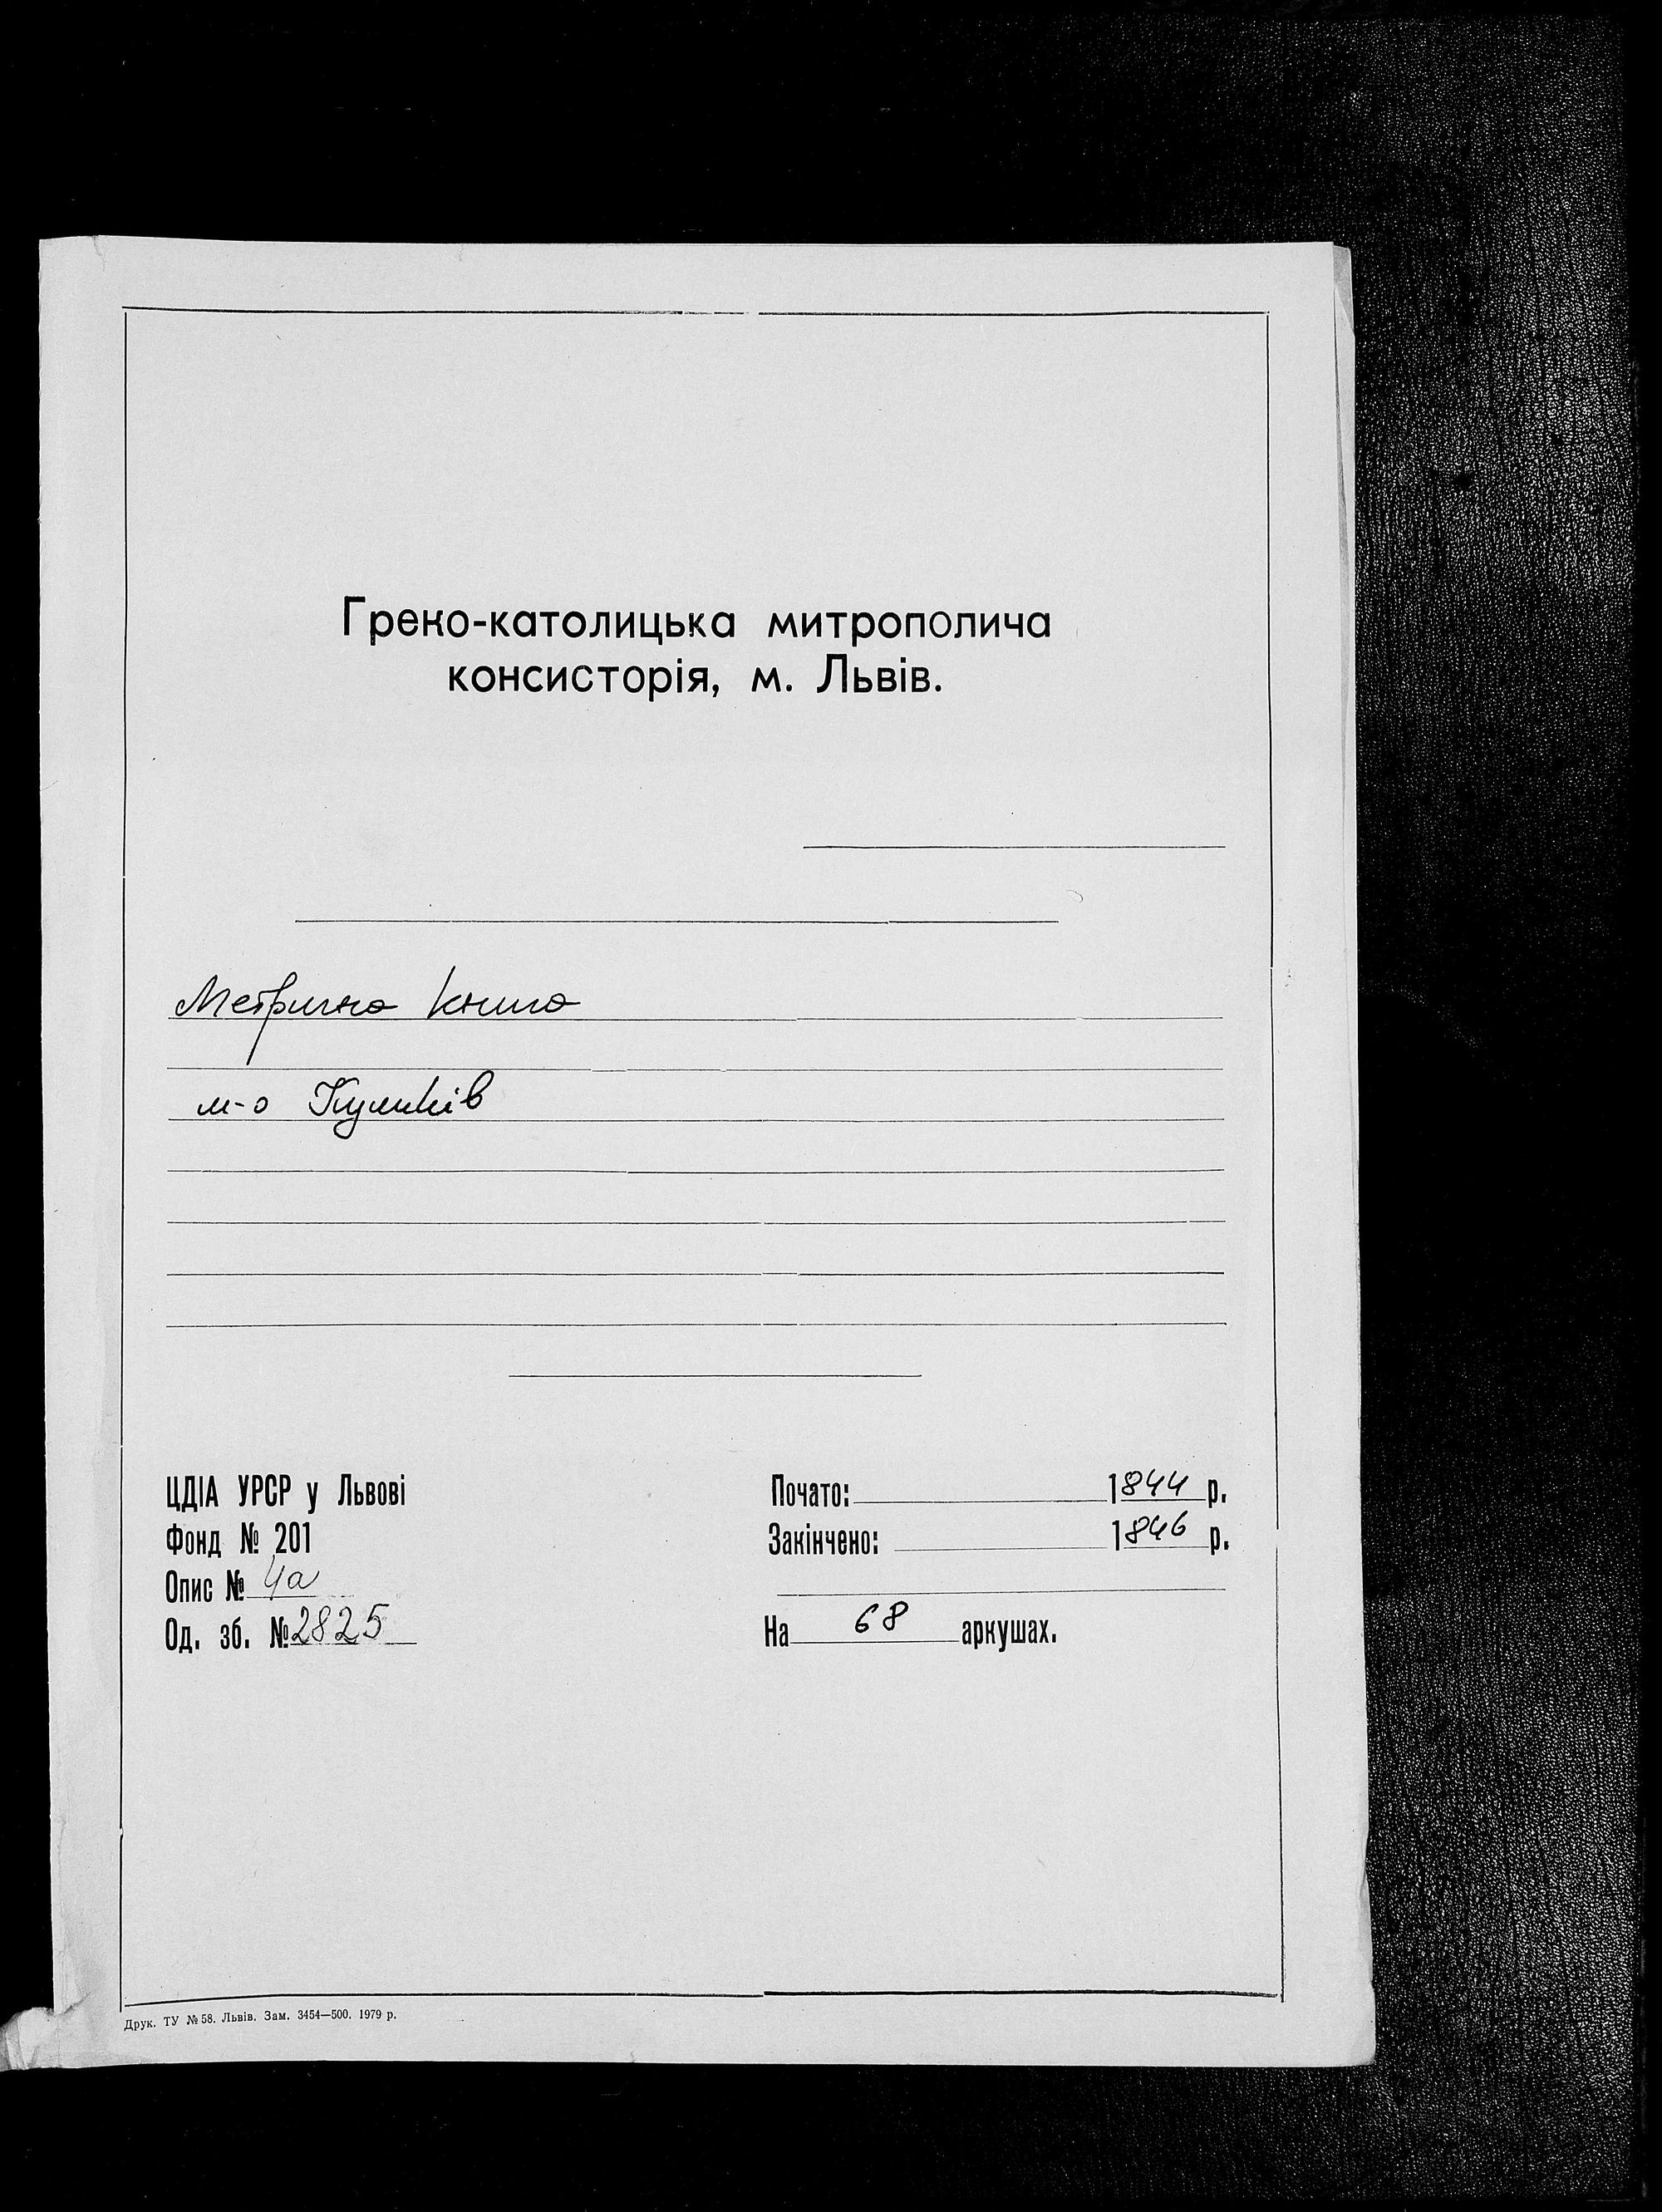 Греко-католицька митрополича
консисторія, м. Львів.
Метрична книга
м-о Куликів
ЦДІА УРСР у Львові
Фонд № 201
Опис № 4а
Од. зб. № 2825
Почато: 1844 р.
Закінчено: 1846 р.
На 68 аркушах.
Друк. ТУ № 58. Львів. Зам. 3454—500. 1979 р.